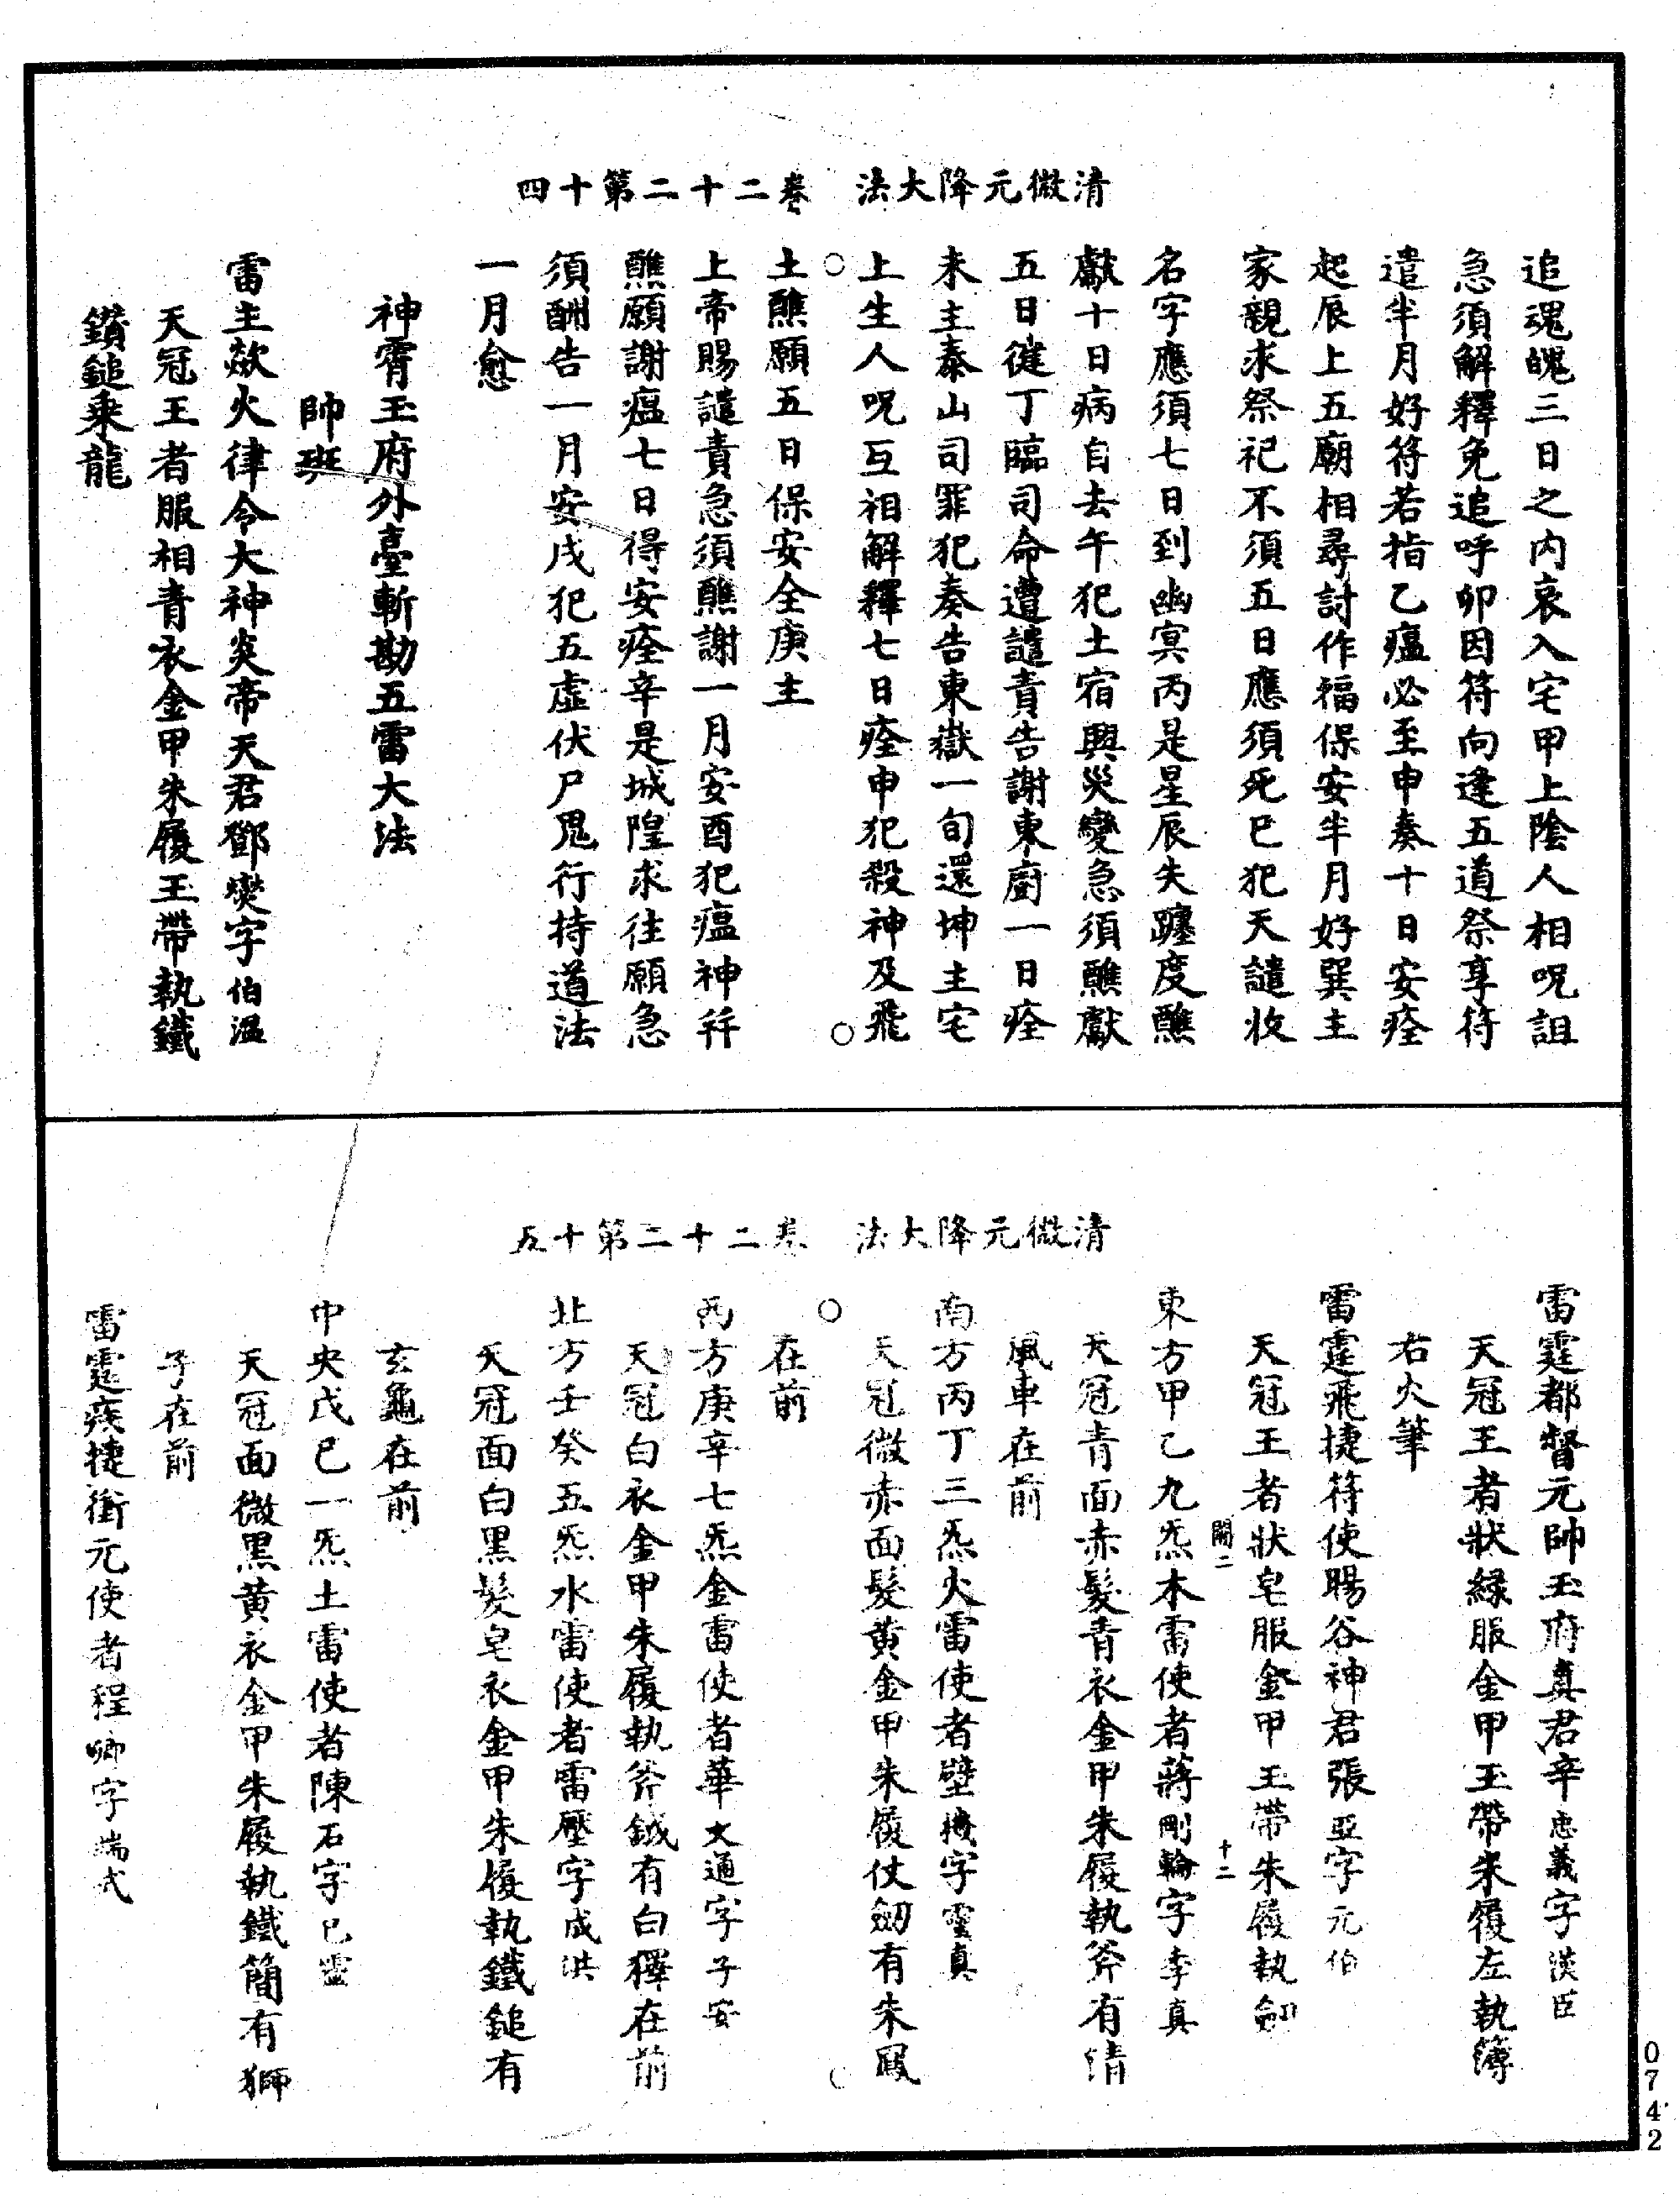 清微元降大法　卷二十二第十四
追魂魄三日之内哀入宅甲上陰人相呪詛
急須解釋免追呼卯因符向逢五道祭享符
遣半月好符若指乙瘟必至申奏十日安痊
起辰上五廟相尋討作福保安半月好巽主
家親求祭祀不須五日應須死巳犯天譴收
名字應須七日到幽冥丙是星辰失躔度醮
獻十日病自去午犯土宿興災變急須醮獻
五日健丁臨司命遭譴責告謝東廚一日痊
未主泰山司罪犯奏告東嶽一旬還坤主宅
上生人呪互相解釋七日痊申犯殺神及飛
土醮願五日保安全庚主
上帝賜譴責急須醮謝一月安酉犯瘟神幷
醮願謝瘟七日得安痊辛是城隍求往願急
須酬告一月安戌犯五虛伏尸鬼行持道法
一月愈
神霄玉府外臺斬勘五雷大法
帥班
雷主歘火律令大神炎帝天君鄧燮字伯溫
天冠王者服相青衣金甲朱履玉帶執鐵
鑽鎚乘龍
清微元降大法　卷二十二第十五
雷霆都督元帥玉府真君辛忠義字漢臣
天冠王者狀綠服金甲玉帶朱履左執簿
右火筆
雷霆飛捷符使暘谷神君張亞字元伯
天冠王者狀皂服金甲玉帶朱履執劒
開二　十二
東方甲乙九炁木雷使者蔣剛輪字李真
天冠青面赤髮青衣金甲朱履執斧有青
風車在前
南方丙丁三炁火雷使者壁機字靈真
天冠微赤面髮黃金甲朱履仗劒有朱鳳
在前
西方庚辛七炁金雷使者華文通字子安
天冠白衣金甲朱履執斧鉞有白獬在前
北方壬癸五炁水雷使者雷壓字成洪
天冠面白黑髮皂衣金甲朱履執鐵鎚有
玄龜在前
中央戊己一炁土雷使者陳石字巳靈
天冠面微黑黃衣金甲朱履執鐵簡有獅
子在前
雷霆疾捷衝元使者程卿字端式
0742